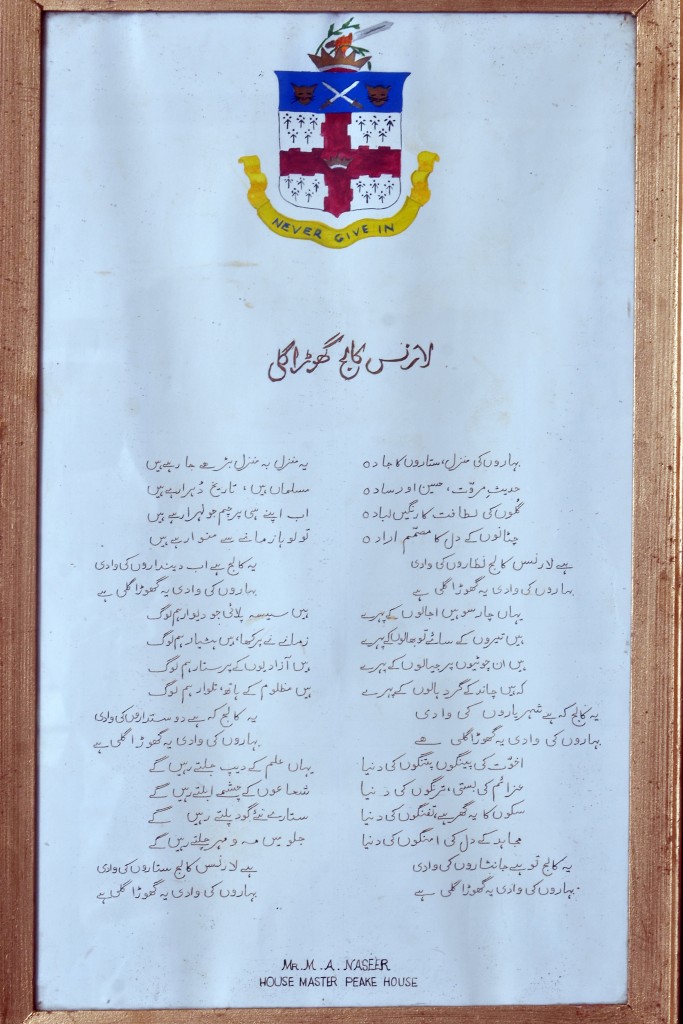 NEVER GIVE IN
لارنس کالج گھوڑا گلی
بہاروں کی منزل، ستاروں کا جادہ
حدیثِ مروّت، حسین اور سادہ
گلوں کی لطافت کا رنگیں لبادہ
چٹانوں کے دل کا مصمّم ارادہ
ہے لارنس کالج نظاروں کی وادی
بہاروں کی وادی یہ گھوڑا گلی ہے
یہاں چار سو ہیں اجالوں کے پہرے
ہیں تیروں کے سائے تو بھالوں کے پہرے
ہیں ان چوٹیوں پر جیالوں کے پہرے
کہ ہیں چاند کے گرد ہالوں کے پہرے
یہ کالج کہ ہے شہریاروں کی وادی
بہاروں کی وادی یہ گھوڑا گلی ہے
اخوّت کی پینگوں پتنگوں کی دنیا
عزائم کی بستی، ترنگوں کی دنیا
سکوں کا یہ گھر ہے، تفنگوں کی دنیا
مجاہد کے دل کی امنگوں کی دنیا
یہ کالج تو ہے جانثاروں کی وادی
بہاروں کی وادی یہ گھوڑا گلی ہے
یہ منزل بہ منزل بڑھے جا رہے ہیں
مسلماں ہیں، تاریخ دُہرا رہے ہیں
اب اپنے ہی پرچم جو لہرا رہے ہیں
تو لوہا زمانے سے منوا رہے ہیں
یہ کالج ہے اب دینداروں کی وادی
بہاروں کی وادی یہ گھوڑا گلی ہے
ہیں سیسہ پلائی جو دیوار ہم لوگ
زمانے نے پرکھا، ہیں ہشیار ہم لوگ
ہیں آزادیوں کے پرستار ہم لوگ
ہیں مظلوم کے ہاتھ، تلوار ہم لوگ
یہ کالج کہ ہے دوستداروں کی وادی
بہاروں کی وادی یہ گھوڑا گلی ہے
یہاں علم کے دیپ جلتے رہیں گے
شعاعوں کے چشمے ابلتے رہیں گے
ستارے نئے گود پلتے رہیں گے
جلو میں مہ و مہر چلتے رہیں گے
ہے لارنس کالج ستاروں کی وادی
بہاروں کی وادی یہ گھوڑا گلی ہے
MR. M. A. NASEER
HOUSE MASTER PEAKE HOUSE